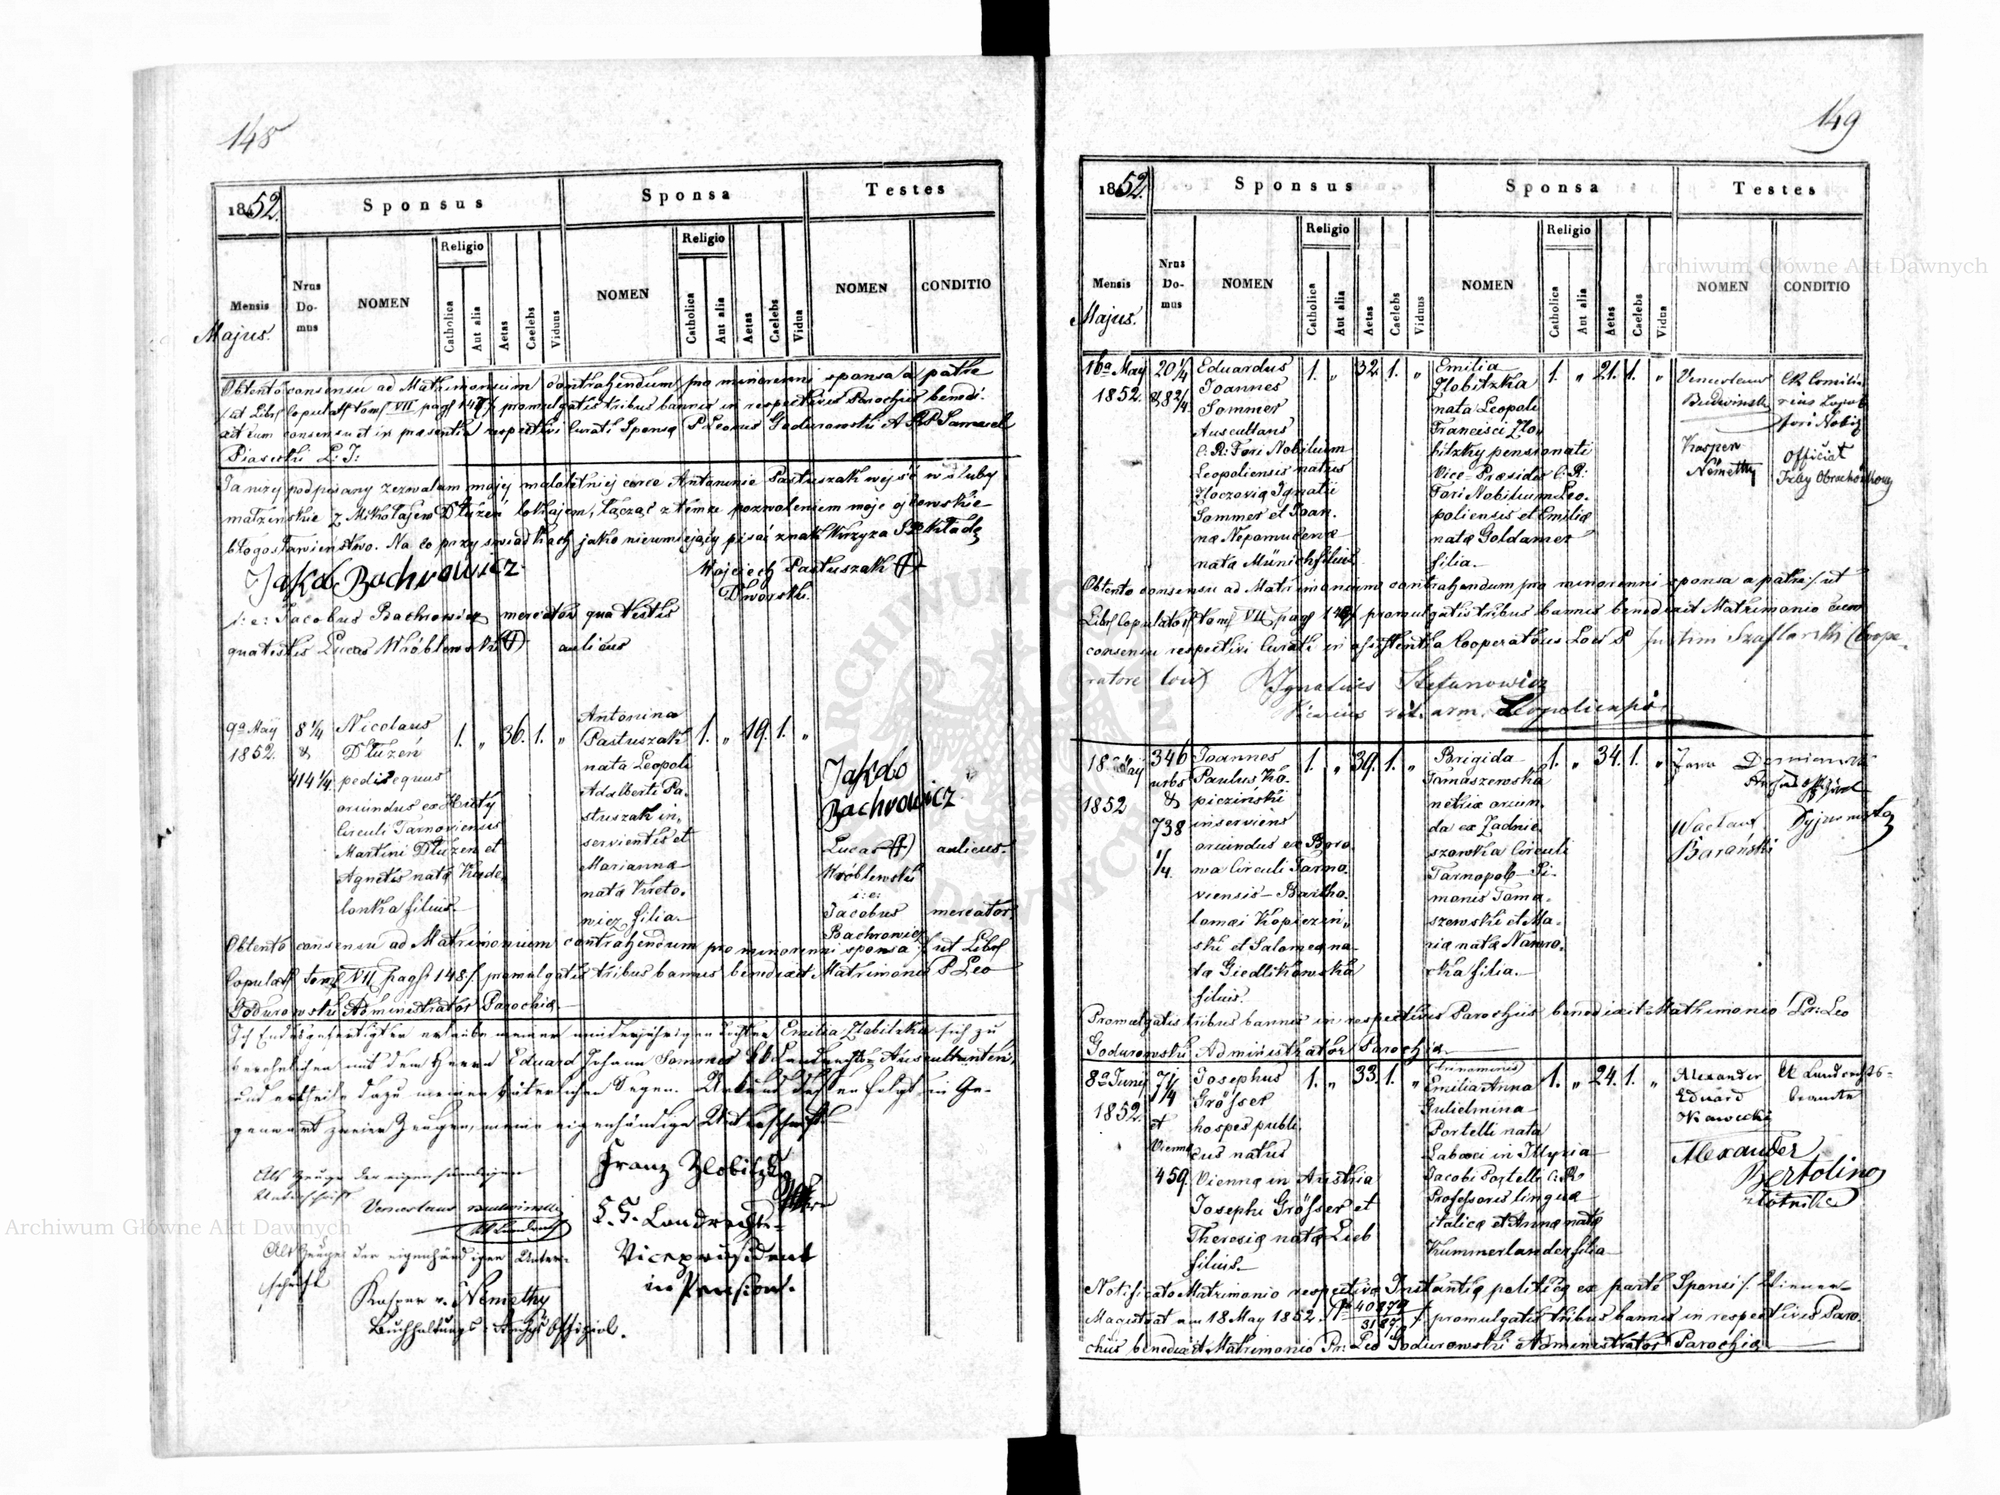 148
1852.
Sponsus
Sponsa
Testes
Mensis
Majus.
Nrus Do- mus
NOMEN
Religio
Catholica
Aut alia
Aetas
Caelebs
Viduus
NOMEN
Religio
Catholica
Aut alia
Aetas
Caelebs
Vidua
NOMEN
CONDITIO
Obtento consensu ad Matrimonium contrahendum pro minorenni sponsa a patre
promulgatis tribus bannis in respectivis Parochiis benedi-
xit cum consensu et in praesentia respectivi Curati Sponsa P. Leonis Godurowski
Piasecki
Ja niżej podpisany zezwalam mojej małoletniej córce Antoninie Pastuszak wejść w śluby
małżeńskie z Mikołajem Dłużeń lokajem, łącząc z temże pozwoleniem moje ojcowskie
błogosławieństwo. Na co przy świadkach jako nieumiejący pisać znak Krzyża S. kładę
Jakob Bachrowicz
Wojciech Pastuszak (+)
Dworski.
i: e: Jacobus Bachrowicz mercator qua testis
qua testis Lucas Wróblewski (+) aulicus
9a Maij
1852.
8 1/4
&
414 1/4
Nicolaus
Dłużeń
pedissequus
oriundus ex
Circuli Tarnoviensis
Martini Dłużen et
Agnetis nata Kade-
lonka filius.
1. „ 36. 1. „
Antonina
Pastuszak
nata Leopoli
Adalberti Pa-
stuszak in-
servientis et
Marianna
nata Kreto-
wicz filia.
1. „ 19. 1. „
Jakób
Bachrowicz
Lucas (+) aulicus.
Wróblewski
i: e:
Jacobus mercator.
Bachrowicz
Obtento consensu ad Matrimonium contrahendum pro minorenni sponsa /: ut Libr
Copulat tom VII pag 148 /. promulgatis tribus bannis benedixit Matrimonio P Leo
Godurowski Administrator Parochia
Ich Endesgefertigter erlaube meiner minderjährigen Tochter Emilia Zlobitzka sich zu
verehelichen mit dem Herrn Eduard Johann Sommer k k Landrechts Auskultanten,
und ertheile dazu meinen väterlichen Segen. Urkund dessen folgt in Ge-
genwart zweier Zeugen, meine eigenhändige Unterschrift
Als Zeuge der eigenhändigen
Unterschrift
Franz Zlobitzky
K. K. Landrechts-
Vicepraesident
in Pension.
Als Zeuge der eigenhändigen Unter-
schrift
Kasper v. Némethy
Buchhaltungs Offizial.
149
1852.
Sponsus
Sponsa
Testes
Mensis
Majus.
Nrus Do- mus
NOMEN
Religio
Catholica
Aut alia
Aetas
Caelebs
Viduus
NOMEN
Religio
Catholica
Aut alia
Aetas
Caelebs
Vidua
NOMEN
CONDITIO
16a May
1852.
20 1/4
& 82/4
Eduardus
Joannes
Sommer
Auscultans
C. R. Fori Nobilium
Leopoliensis natus
Zloczovia Ignatii
Sommer et Joan-
na Nepomucena
nata Münich filius
1. „ 32. 1. „
Emilia
Zlobitzka
nata Leopoli
Francisci Zlo-
bitzky pensionati
Vice-Praesidis C: R:
Fori Nobilium Leo-
poliensis et Emilia
nata Goldamer
filia.
1. „ 21. 1. „
Kasper
Némethy
Officiał
Izby Obrachunkowy
Obtento consensu ad Matrimonium contrahendum pro minorenni sponsa a patre /: ut
Libr Copulator tom VII pag promulgatis tribus bannis benedixit Matrimonio cum
consensu respectivi Curati in assistentia Cooperatoris Loci P Justim Szaflarski Coope-
ratore loci
Ignatius Stefanowicz
Vicarius rit. arm. Leopoliensis
18 May
1852
346
urbs
&
738
1/4
Joannes
Paulus Ko-
pieziński
inserviens
oriundus ex Boro-
wa Circuli Tarno-
viensis Bartho-
lomaei Kopiezin-
ski et Salomea na-
ta Giedlikowska
filius.
1. „ 39. 1. „
Brigida
Tomaszewska
netrix oriun-
da ex Zadnie-
szowka Circuli
Tarnopol Si-
monis Toma-
szewski et Ma-
ria nata Nawro-
cka filia.
1. „ 34. 1. „
Wacław
Barański
Promulgatis tribus bannis in respectivis Parochiis benedixit Matrimonio Pr: Leo
Godurowski Administrator Parochia.
8a Junij
1852.
7 1/4
et
Vienna
459.
Josephus
Grösser
hospes publi-
cus natus
Vienna in Austria
Josephi Grösser et
Theresia nata Lieb
filius.
1. „ 33. 1. „
Emilia Anna
Gulielmina
Portelli nata
Labaci in Illyria
Jacobi Portelli C. R.
Professoris lingua
italica et Anna nata
Kummerlander filia
1. „ 24. 1. „
Alexander
Eduard
Nawecki
kk Landrechts-
beamte
Alexander
Bertolino
Notificato Matrimonio respectiva Instantia politica ex parte Sponsi /. Wiener
Magistrat am 18 May 1852. promulgatis tribus bannis in respectivis Paro-
chiis benedixit Matrimonio Pr: Leo Godurowski Administrator Parochia
Archiwum Główne Akt Dawnych
Archiwum Główne Akt Dawnych